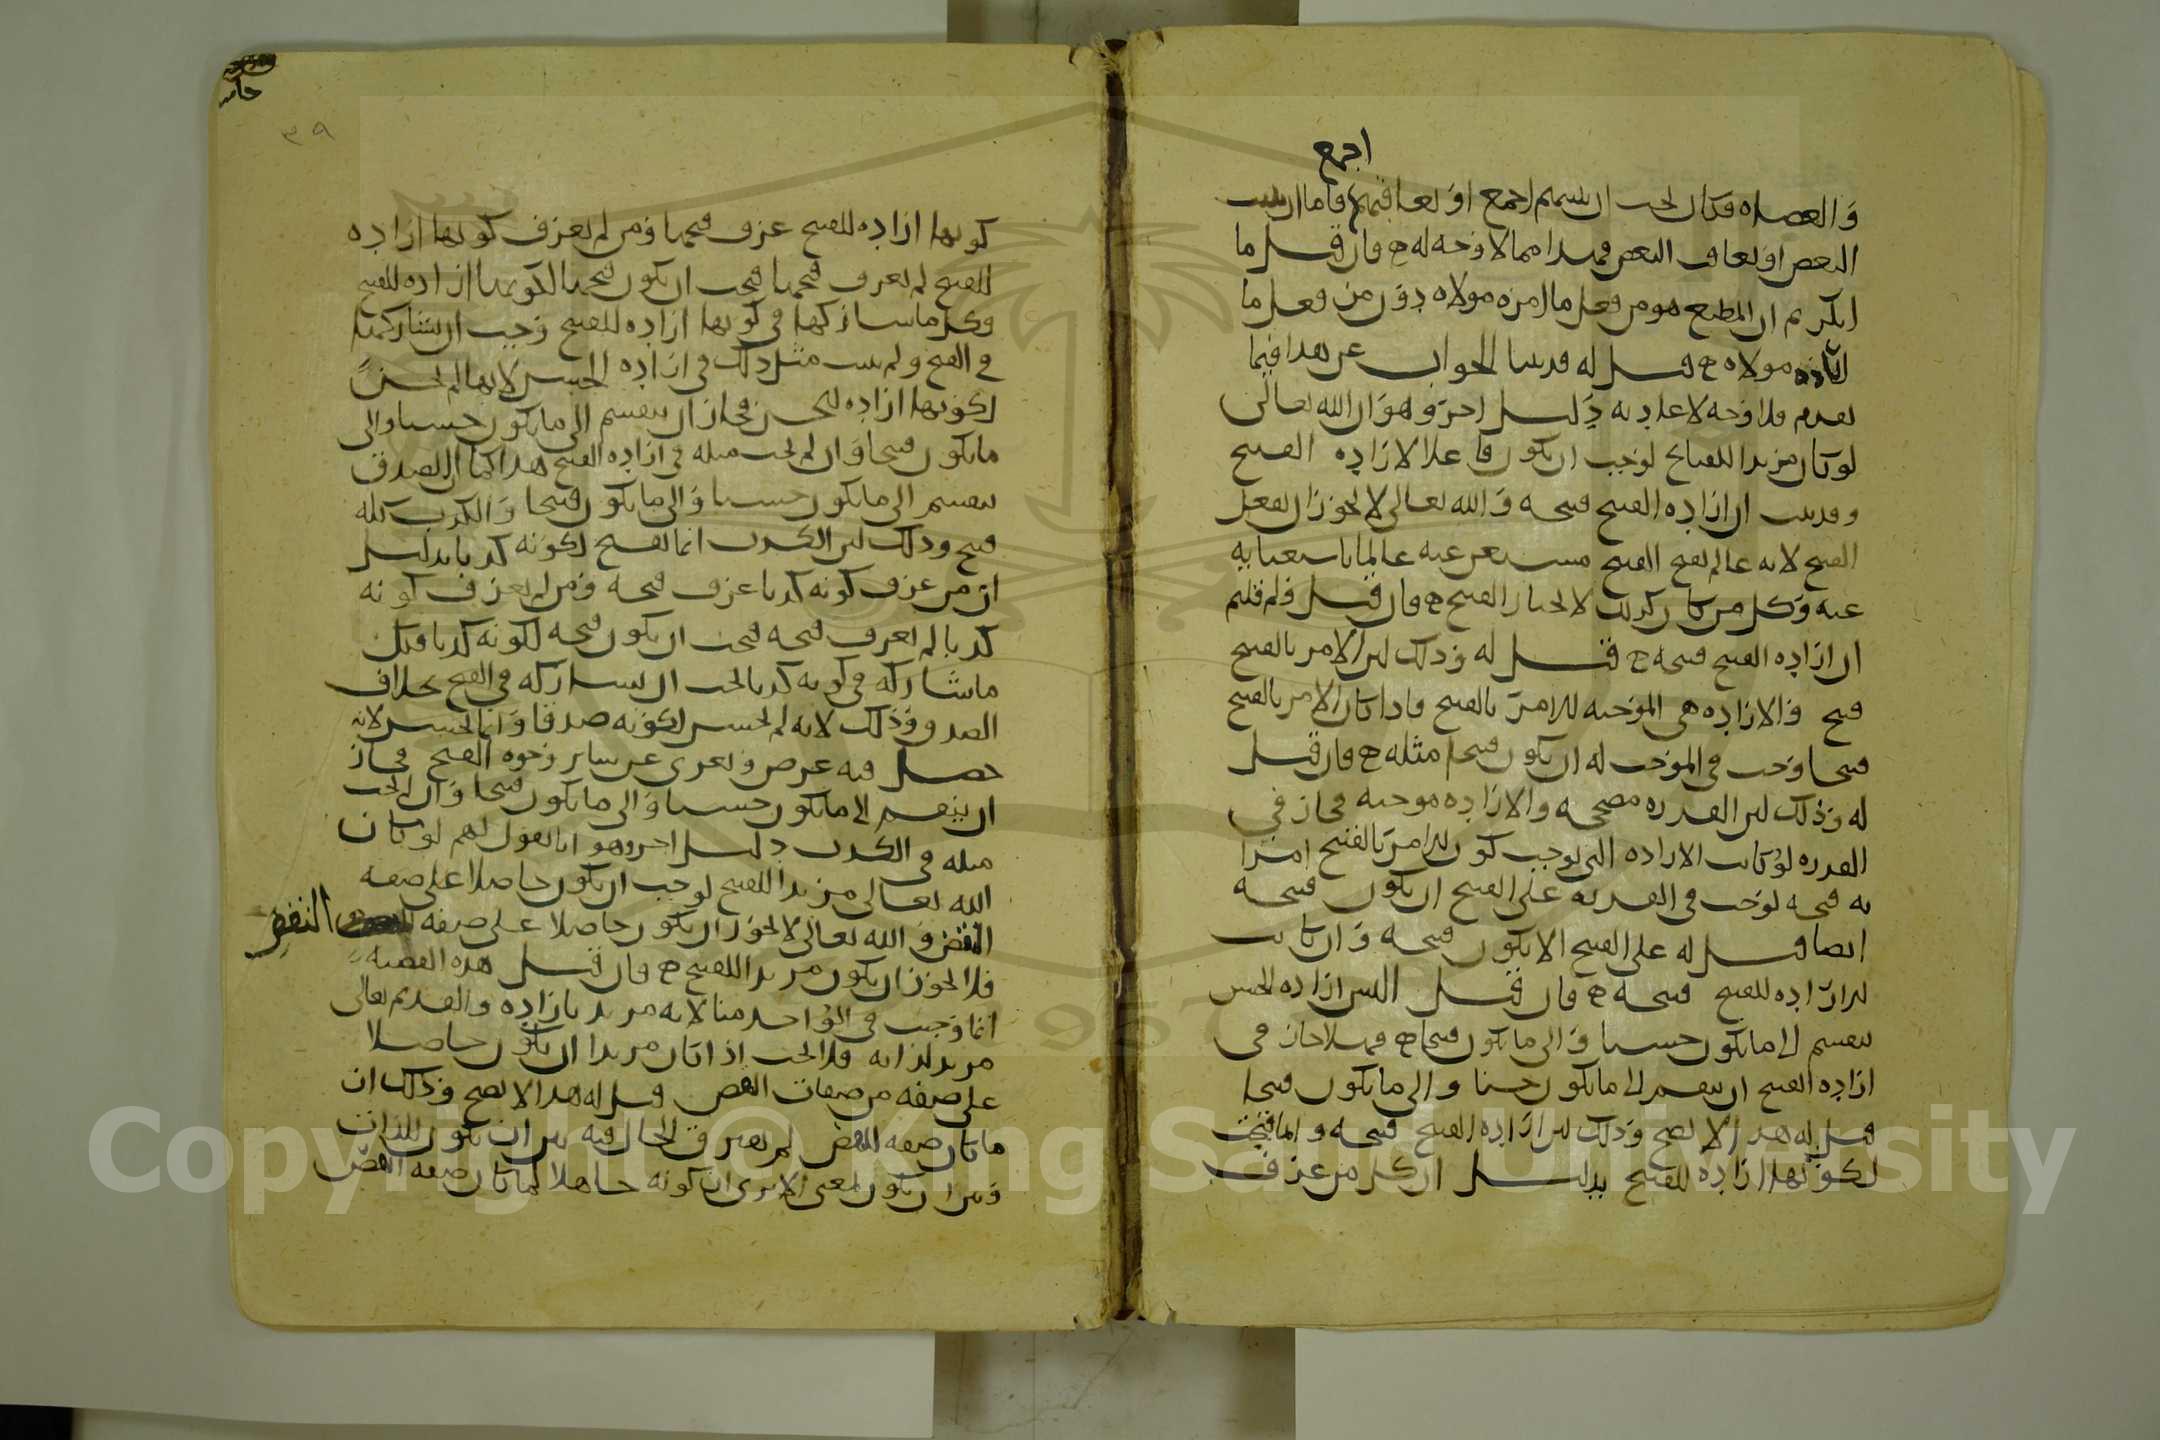 اجمع
والعصاه فكان يجب ان يثيبهم اجمع او يعاقبهم فاما ان يثيب
البعض او يعاقب البعض فهذا مما لا وجه له فان قيل ما
انكرتم ان المطيع هو من فعل ما امره مولاه دون من فعل ما
اراده مولاه قيل له قد بينا الجواب عن هذا فيما
تقدم فلا وجه لاعادته دليل اخر وهو ان الله تعالى
لو كان مريدا للقبايح لوجب ان يكون فاعلا لارادة القبيح
وقد ثبت ان ارادة القبيح قبيحه والله تعالى لا يجوز ان يفعل
القبيح لانه عالم بقبح القبيح مستغن عنه عالم باستغنايه
عنه وكل من كان كذلك لا يختار القبيح فان قيل فلم قلتم
ان ارادة القبيح قبيحه قيل له وذلك لان الامر بالقبيح
قبيح والاراده هي الموجبه للامر بالقبيح فاذا كان الامر بالقبيح
قبيحا وجب في الموجب له ان يكون قبيحا مثله فان قيل
له وذلك لان القدره مصححه والاراده موجبه فجاز في
القدره لو كانت الاراده التي توجب كون الامر بالقبيح امرا
به قبيحه لوجب في القدره على القبيح ان يكون قبيحه
ايضا قيل له على القبيح الا يكون قبيحه وان كانت
الاراده للقبيح قبيحه فان قيل اليس ارادة الحسن
تنقسم الى ما يكون حسنا والى ما يكون قبيحا فهلا جاز في
ارادة القبيح ان تنقسم الى ما يكون حسنا والى ما يكون قبيحا
قيل له هذا لا يصح وذلك لان ارادة القبيح قبيحه وانما قبحت
لكونها ارادة للقبيح بدليل ان كل من عرف
٣٩
كونها اراده للقبيح عرف قبحها ومن لم يعرف كونها اراده
للقبيح لم يعرف قبحها فيجب ان يكون قبحها لكونها اراده للقبيح
وكل ما شاركها في كونها اراده للقبيح وجب ان يشاركها
في القبح ولم يثبت مثل ذلك في ارادة الحسن لانها لم تحسن
لكونها اراده للحسن فجاز ان ينقسم الى ما يكون حسنا والى
ما يكون قبيحا وان لم يجب مثله في ارادة القبيح هذا كما ان الصدق
ينقسم الى ما يكون حسنا والى ما يكون قبيحا والكذب كله
قبيح وذلك لان الكذب انما يقبح لكونه كذبا بدليل
ان من عرف كونه كذبا عرف قبحه ومن لم يعرف كونه
كذبا لم يعرف قبحه فيجب ان يكون قبحه لكونه كذبا فكل
ما شاركه في كونه كذبا يجب ان يشاركه في القبح بخلاف
الصدق وذلك لانه لم يحسن لكونه صدقا وانما يحسن لانه
حصل فيه غرض وتعرى عن ساير وجوه القبح فجاز
ان ينقسم الى ما يكون حسنا والى ما يكون قبيحا وان لم يجب
مثله في الكذب دليل اخر وهو انا نقول لهم لو كان
الله تعالى مريدا للقبيح لوجب ان يكون حاصلا على صفه
النقص والله تعالى لا يجوز ان يكون حاصلا على صفه النقص
فلا يجوز ان يكون مريدا للقبيح فان قيل هذه القضيه
انما وجبت في الواحد منا لانه مريد باراده والقديم تعالى
مريد لذاته فلا يجب اذا كان مريدا ان يكون حاصلا
على صفه من صفات النقص قيل له هذا لا يصح وذلك ان
ما كان صفه النقص لم يفترق الحال فيه بين ان يكون للذات
وبين ان يكون لمعنى الا ترى ان كونه جاهلا لما كان صفه النقص